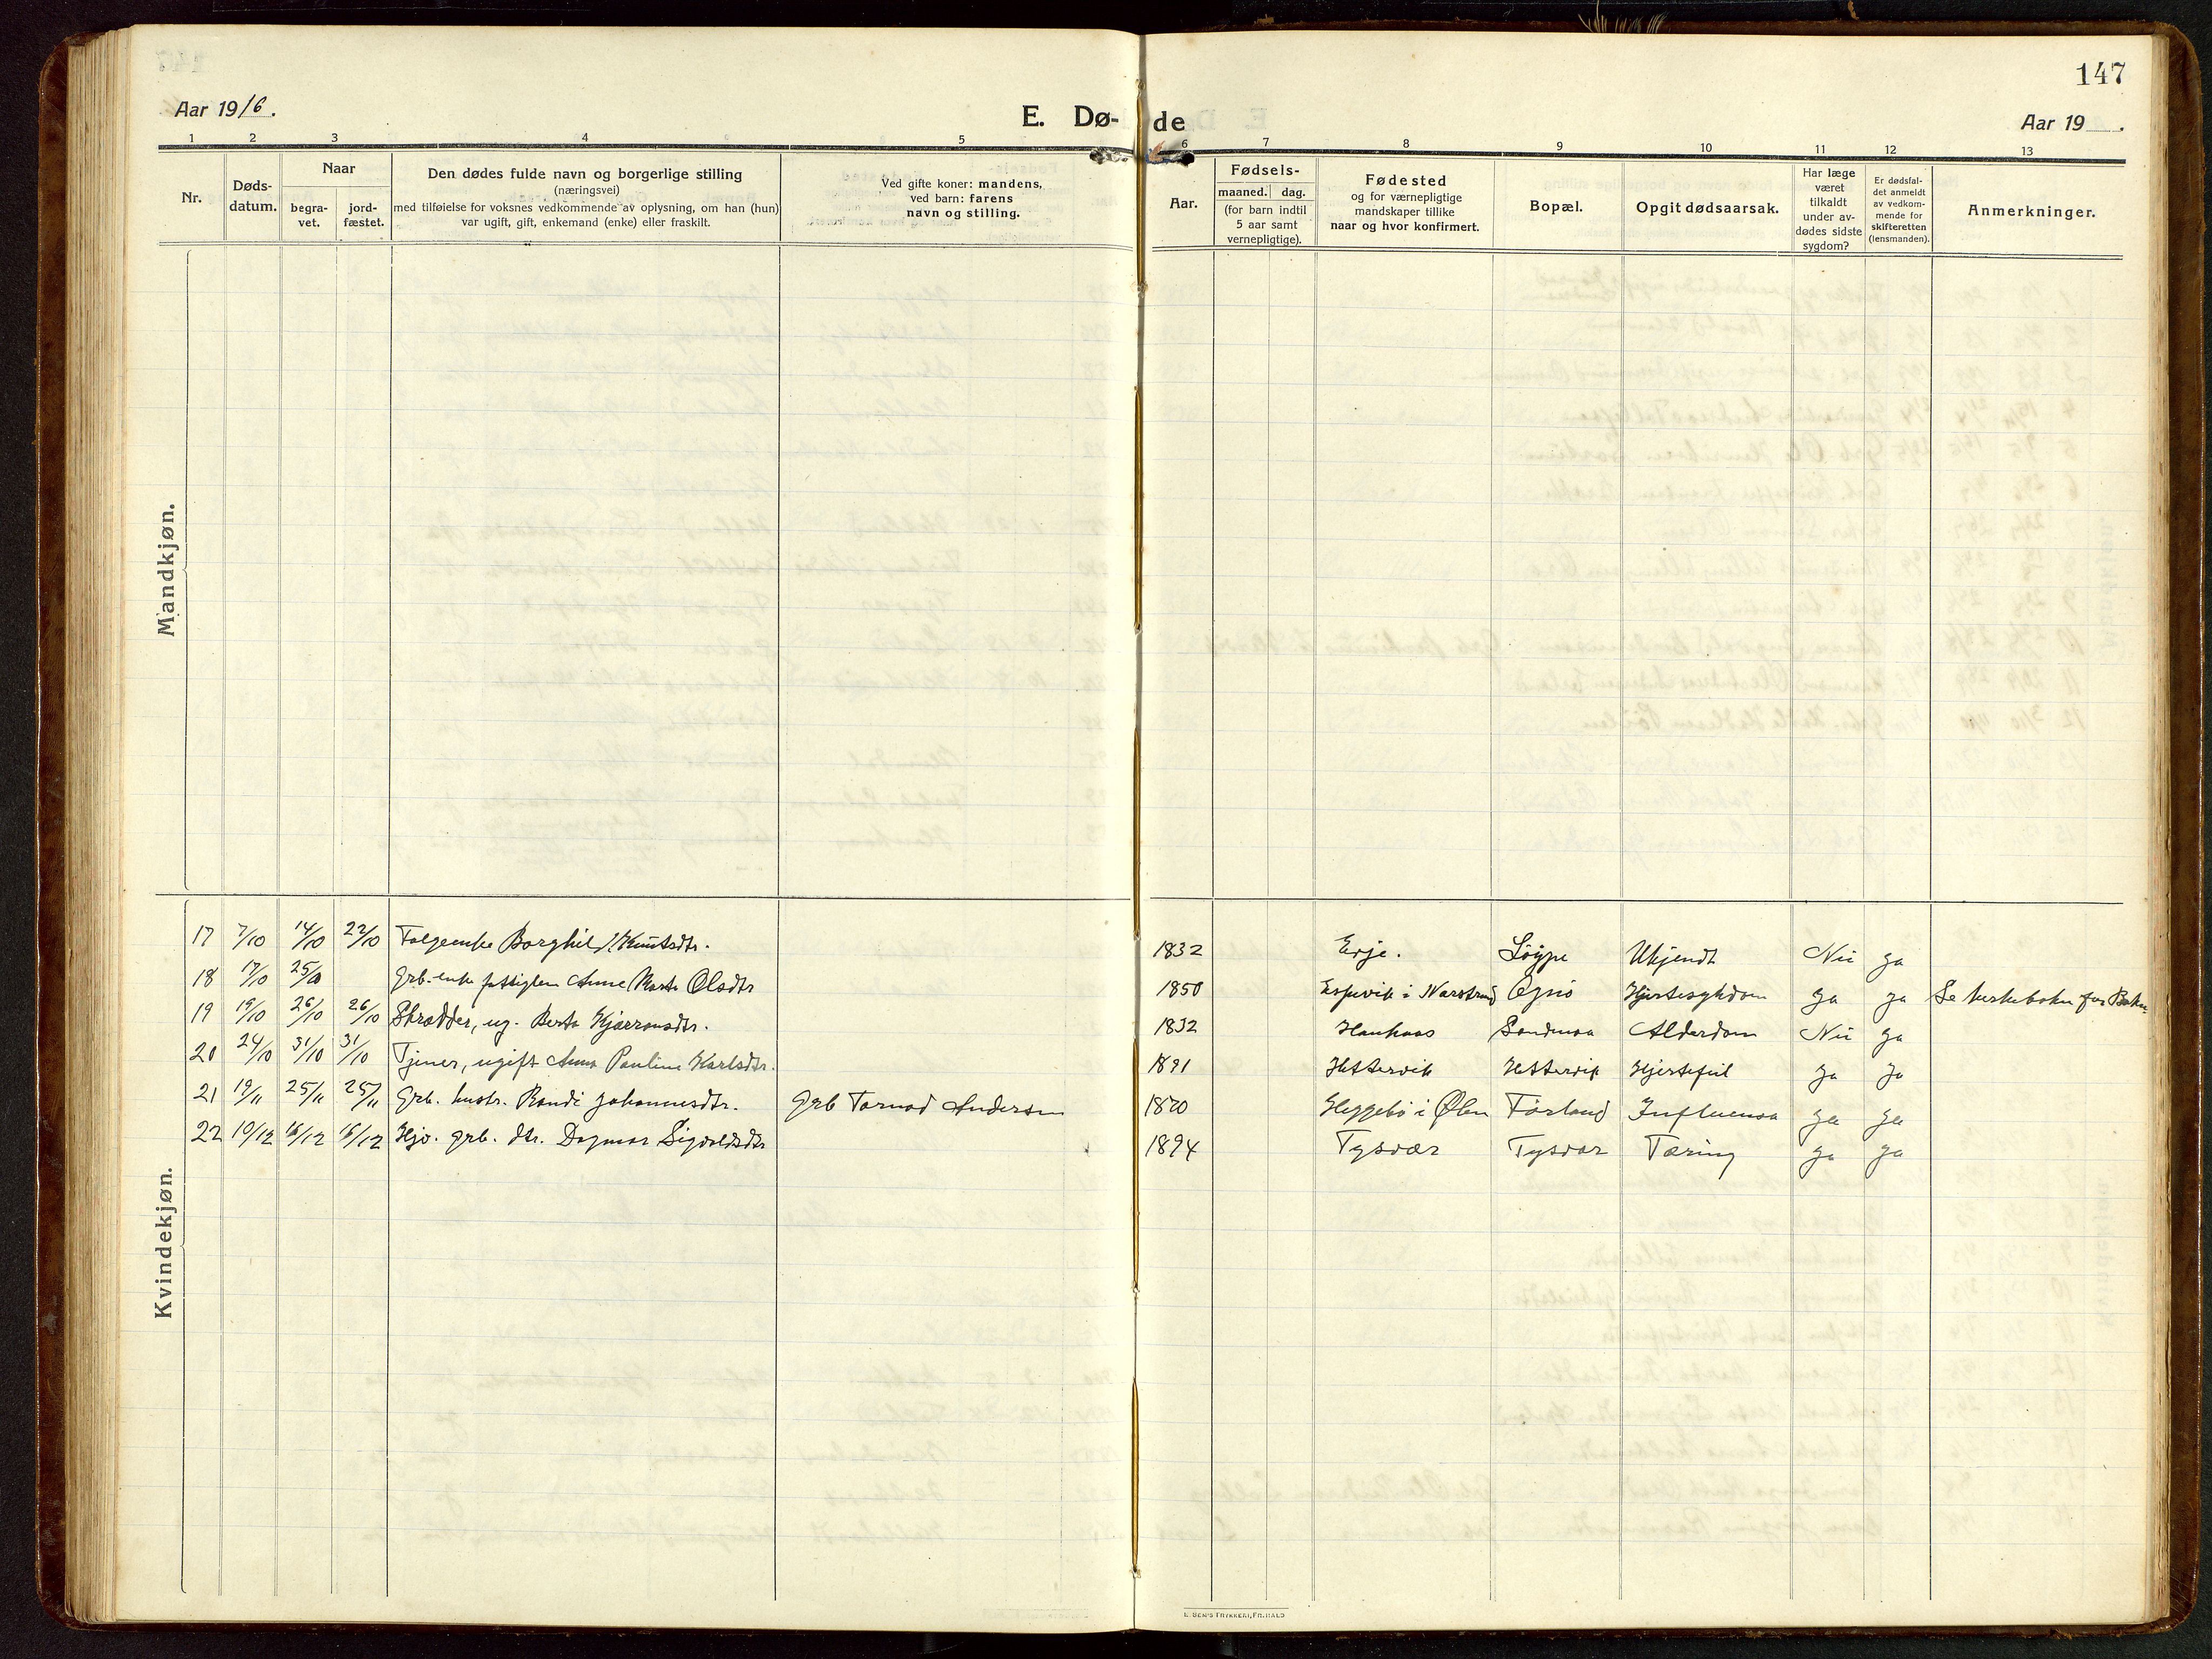 147
Aar 1916.
E. Dø- de
Aar 19 .
1 2 3 4 5 6 7 8 9 10 11 12 13
Nr.
Døds-
datum.
Naar
begra-
vet.
jord-
fæstet.
Den dødes fulde navn og borgerlige stilling
(næringsvei)
med tilføielse for voksnes vedkommende av oplysning, om han (hun)
var ugift, gift, enkemand (enke) eller fraskilt.
Ved gifte koner: mandens,
ved barn: farens
navn og stilling.
Aar.
Fødsels-
maaned. dag.
(for barn indtil
5 aar samt
vernepligtige).
Fødested
og for værnepligtige
mandskaper tillike
naar og hvor konfirmert.
Bopæl.
Opgit dødsaarsak.
Har læge
været
tilkaldt
under av-
dødes sidste
sygdom?
Er dødsfal-
det anmeldt
av vedkom-
mende for
skifteretten
(lensmanden).
Anmerkninger.
Mandkjøn.
Kvindekjøn.
17 7/10 14/10 22/10 Folgeenke Borghild Knutsdtr. 1832 Erje. Løype Ukjendt Nei ja
18 17/10 25/10 Grb. enke fattiglem Anne Marta Olsdtr 1850 Espevik i Narstrand Ognø Hjertesykdom ja ja Se kirkeboken for Bokn.
19 19/10 26/10 26/10 Skrædder, ug. Berta Kjærransdtr. 1832 Haukaas Sandmoa Alderdom Nei ja
20 24/10 31/10 31/10 Tjener, ugift Anna Pauline Karlsdtr. 1891 Hettervik Hettervik Hjertefeil ja ja
21 19/11 25/11 25/11 Grb. hustr. Randi Johannesdtr. Grb Tormod Andersen 1820 Heggebø i Ølen Førland Influensa ja ja
22 10/12 16/12 16/12 Hjv. grb. dtr. Dagmar Sigvaldsdtr 1894 Tysvær Tysvær Tæring ja ja